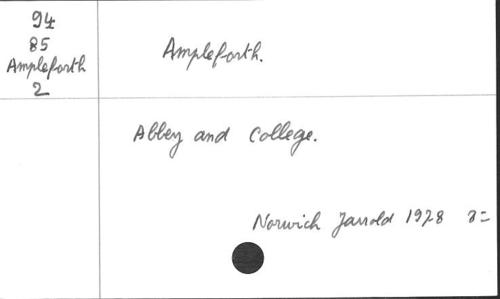 94
85
Ampleforth
2
Ampleforth.
Abbey and College.
Norwich Jarrold 1978 8=